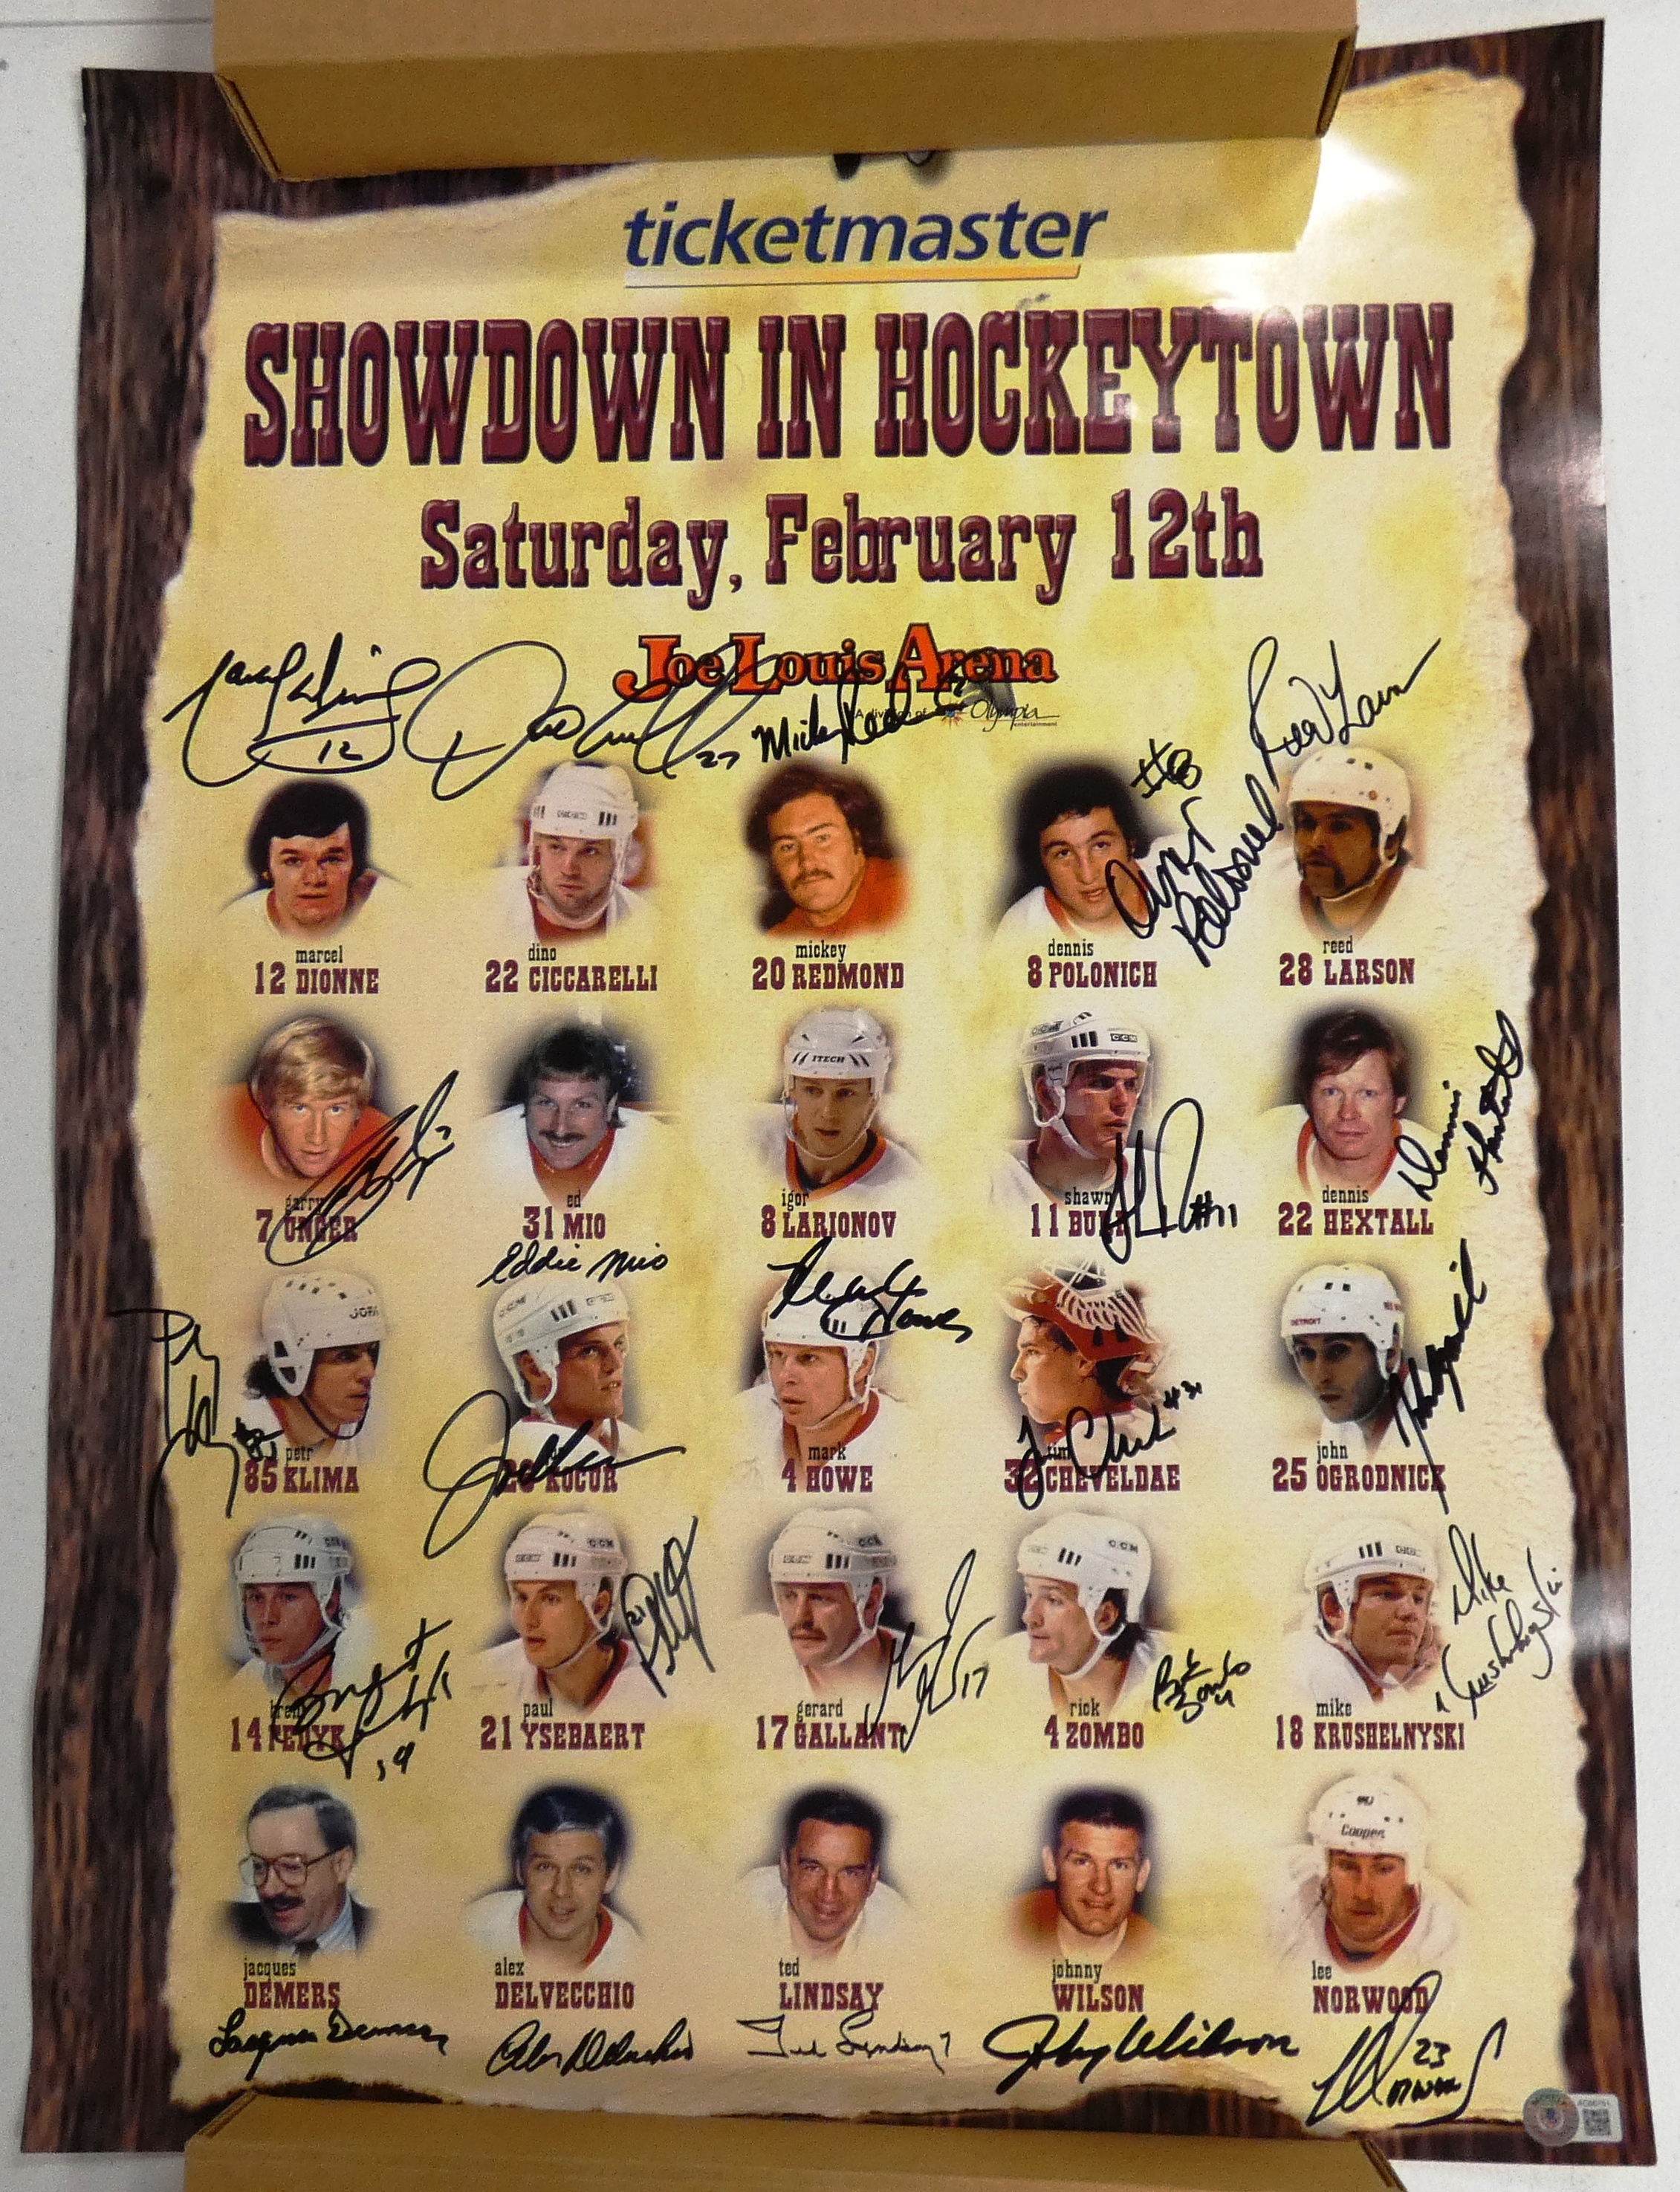 ticketmaster
SHOWDOWN IN HOCKEYTOWN
Saturday, February 12th
Joe Louis Arena
A division of Olympia
entertainment
12
27
Mickey Redmond
#8
Reed Larson
marcel
12 DIONNE
dino
22 CICCARELLI
mickey
20 REDMOND
dennis
8 POLONICH
reed
28 LARSON
ITECH
CCM
Dennis Hextall
garry
7 UNGER
ed
31 MIO
igor
8 LARIONOV
shawn
11 BURR
#11
dennis
22 HEXTALL
Eddie Mio
Mark Howe
JOFA
DETROIT
petr
85 KLIMA
KOCUR
mark
4 HOWE
tim
32 CHEVELDAE
john
25 OGRODNICK
CCM
CCM
CCM
Mike Krushelnyski
brent
14 FEDYK
paul
21 YSEBAERT
gerard
17 GALLANT
rick
4 ZOMBO
mike
18 KRUSHELNYSKI
17
21
Cooper
jacques
DEMERS
alex
DELVECCHIO
ted
LINDSAY
johnny
WILSON
lee
NORWOOD
Jacques Demers
Alex Delvecchio
Ted Lindsay 7
Johnny Wilson
23